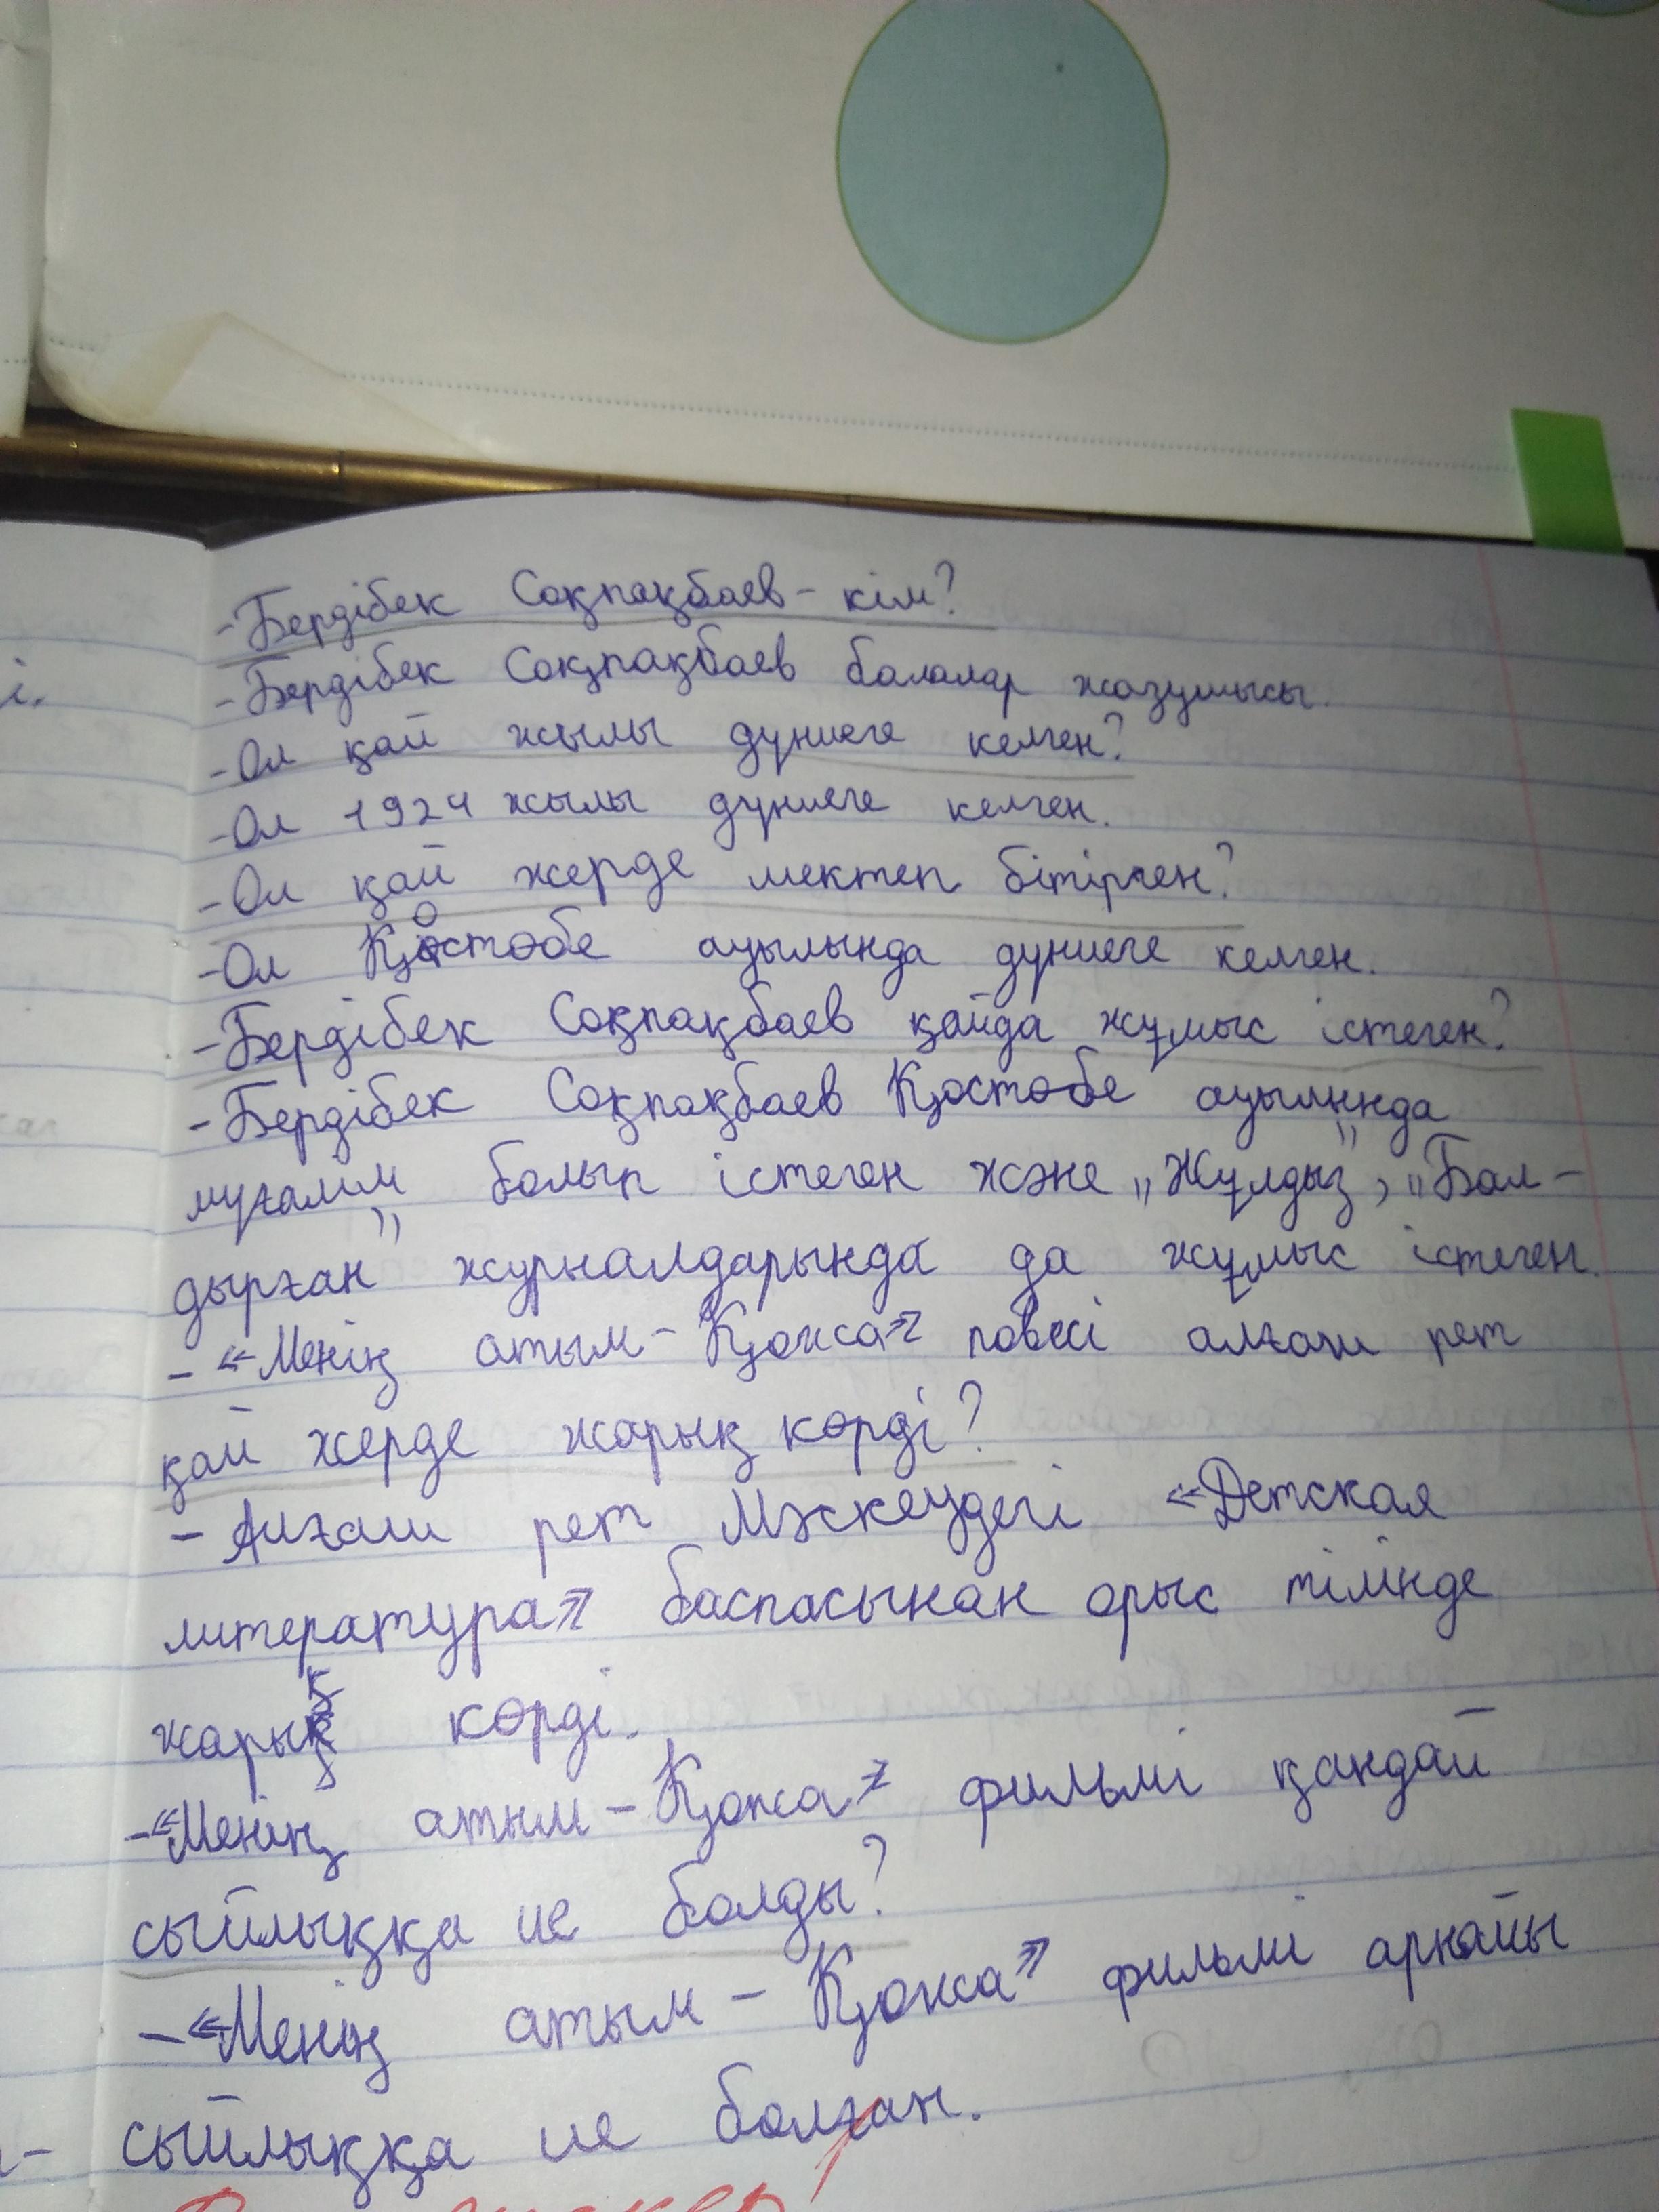 -Бердібек Соқпақбаев- кім?
-Бердібек Соқпақбаев балалар жазушысы.
-Ол қай жылы дүниеге келген?
-Ол 1924 жылы дүниеге келген.
-Ол қай жерде мектеп бітірген?
-Ол Қостөбе ауылында дүниеге келген.
-Бердібек Соқпақбаев қайда жұмыс істеген?
-Бердібек Соқпақбаев Қостөбе ауылында
мұғалім болып істеген және „Жұлдыз”, „Бал-
дырған” журналдарында да жұмыс істеген.
- «Менің атым - Қожа» повесі алғаш рет
қай жерде жарық көрді?
- Алғаш рет Мәскеудегі «Детская
литература» баспасынан орыс тілінде
жарық көрді.
-«Менің атым - Қожа» фильмі қандай
сыйлыққа ие болды?
- «Менің атым - Қожа» фильмі арнайы
сыйлыққа ие болған.